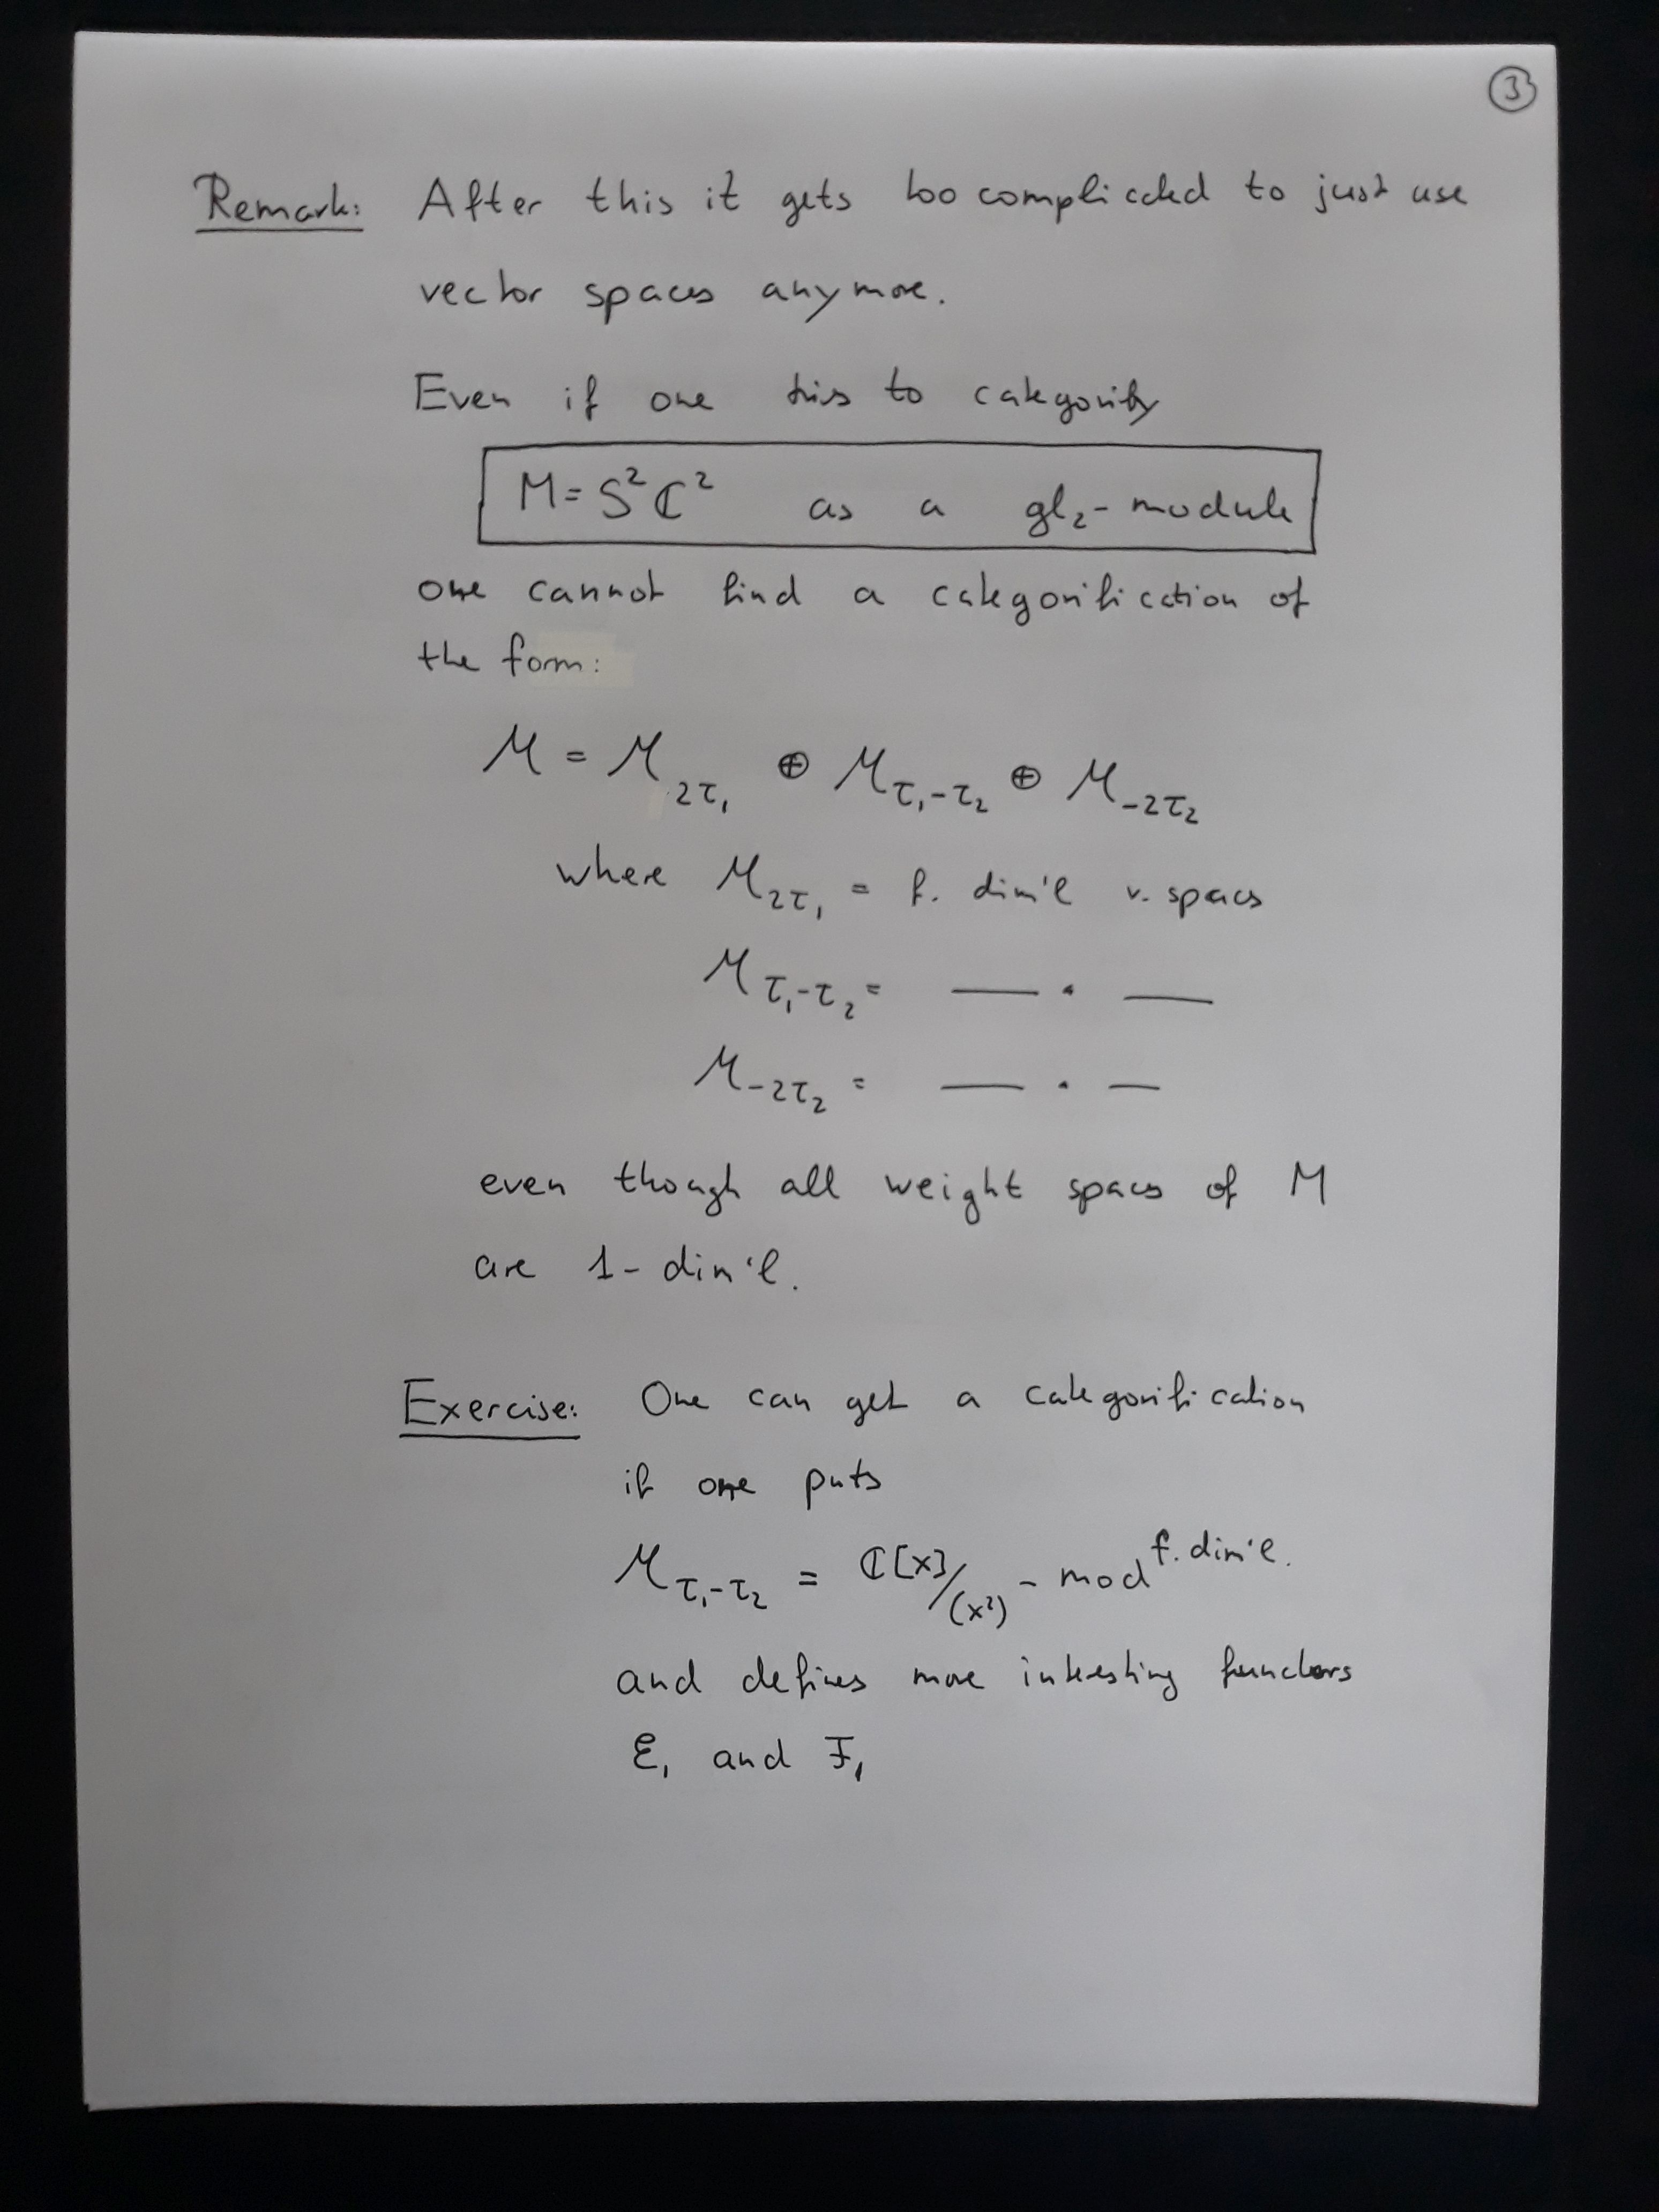 ③
Remark: After this it gets too complicated to just use
vector spaces anymore.
Even if one tries to categorify
M = S²ℂ² as a gl₂-module
one cannot find a categorification of
the form:
ℳ = ℳ_{2τ₁} ⊕ ℳ_{τ₁-τ₂} ⊕ ℳ_{-2τ₂}
where ℳ_{2τ₁} = f. dim'l v. spaces
ℳ_{τ₁-τ₂} = — · —
ℳ_{-2τ₂} = — · —
even though all weight spaces of M
are 1-dim'l.
Exercise: One can get a categorification
if one puts
ℳ_{τ₁-τ₂} = ℂ[x]/(x²) - mod^{f. dim'l.}
and defines more interesting functors
ℰ₁ and ℱ₁